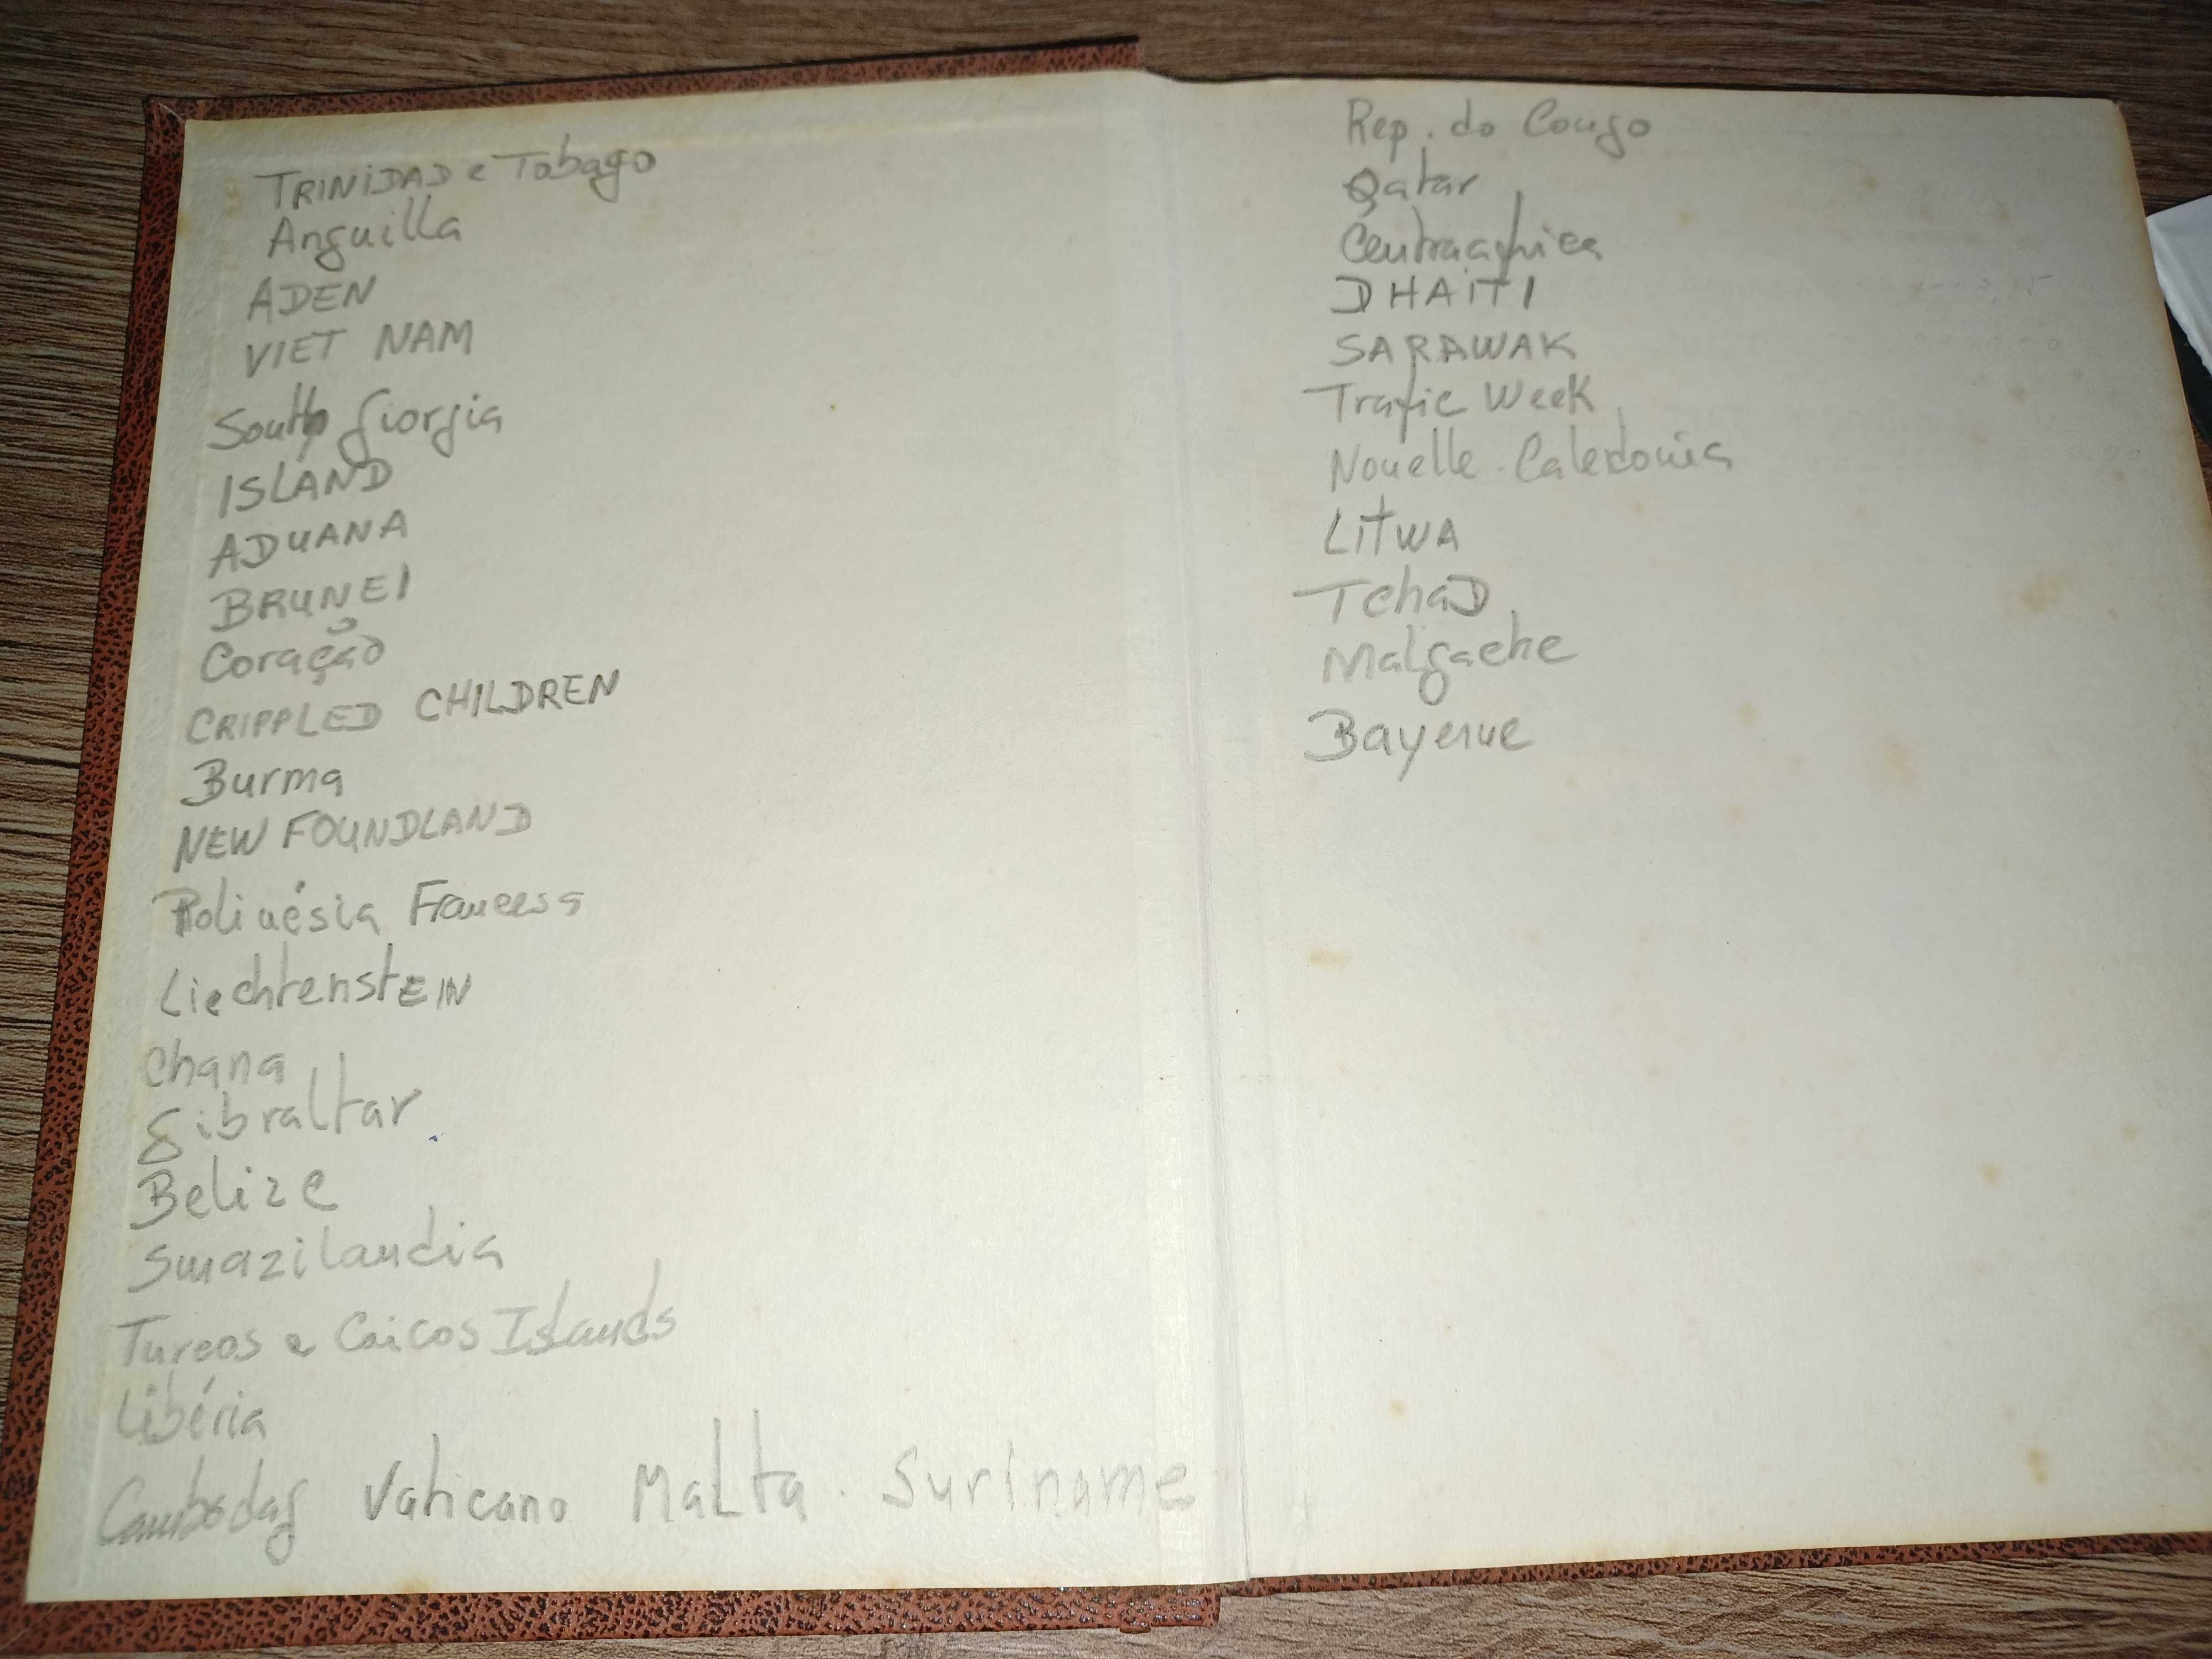 TRINIDAD e Tobago
Anguilla
ADEN
VIET NAM
South Giorgia
ISLAND
ADUANA
BRUNEI
Coração
CRIPPLED CHILDREN
Burma
NEW FOUNDLAND
Polinésia Francesa
LiechtenstEIN
Ghana
Gibraltar
Belize
Swazilandia
Turcos e Caicos Islands
Libéria
Vaticano MaLta. Suriname
Rep. do Congo
Qatar
Centraafrica
DHAITI
SARAWAK
Trafic Week
Nouelle-Caledonia
LitWA
TchaD
Malgache